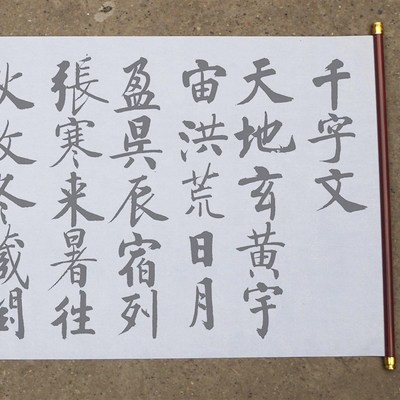 千字文
天地玄黄宇
宙洪荒日月
盈昃辰宿列
張寒来暑往
秋收冬藏閏